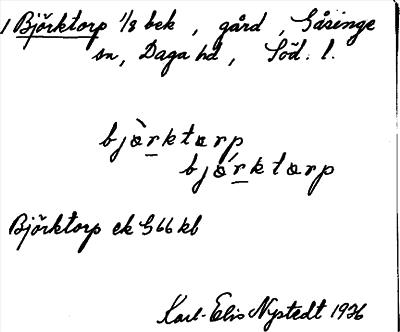 1 Björktorp 1/8 bek , gård , Gåsinge
sn, Daga hd , Söd. l.
bjòrktarp
bjórktarp
Björktorp ek G 66 kb
Karl-Elis Nystedt 1936